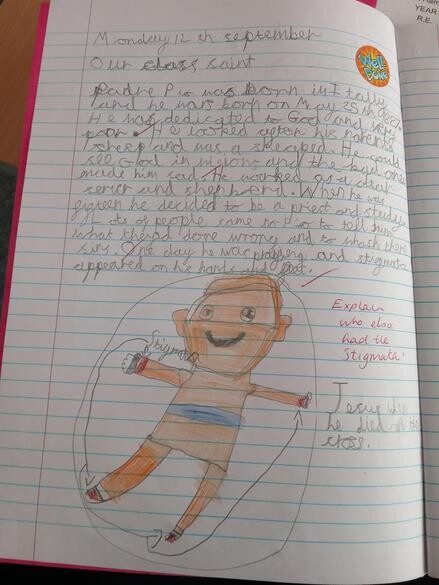 Monday 12th september
Our class saint
WELL DONE
YEAR
R.E.
Padre Pio was born in Itally
and he was born on May 25th
He was dedicated to God and very
poor. He looked after his parents
sheep and was a
see God in visions and the bad ones
made him sad. He worked as a
and shepherd. When he was
fifteen he decided to be a priest and study.
Lots of people came to Pio to tell him
what they'd done wrong and to wash there
sins. One day he was praying and stigmata
appeared on his hands and feet.
Explain
who else
had the
Stigmata.
Stigmata
Jesus when
he died on the
cross.